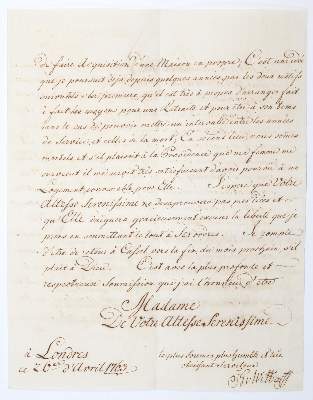 de faire Acquisition d'une Maison en propre; C'est une idée
que je poursuis deja depuis quelques années, par les deux motifs
suivants: la premiere, qu'il est très à propos d'arranger fait
à fait les moyens pour une Retraite et pour être à son tems
dans le cas de pouvoir mettre un intervalle entre les années
de Service, et celles de la mort; En second lieu, nous somes
mortels et s'il plaisoit à la Providence que ma femme me
survecut il me seroit très satisfaisant d'avoir pourvu à un
Logement convenable pour Elle. J'espere que Votre
Altesse Serenissime ne desaprouvera pas mes idées et
qu'Elle daignera gracieusement excuser la liberté que je
prens en soumettant le tout à Ses ordres. Je compte
d'etre de retour à Cassel vers la fin du mois prochain, s'il
plait à Dieu. C'est avec la plus profonde et
respectueuse Soumission que j'ai l'honneur d'etre
Madame
De Votre Altesse Serenissime
à Londres
ce 26 d'Avril
le plus soumis plus humble & très
obeissant Serviteur